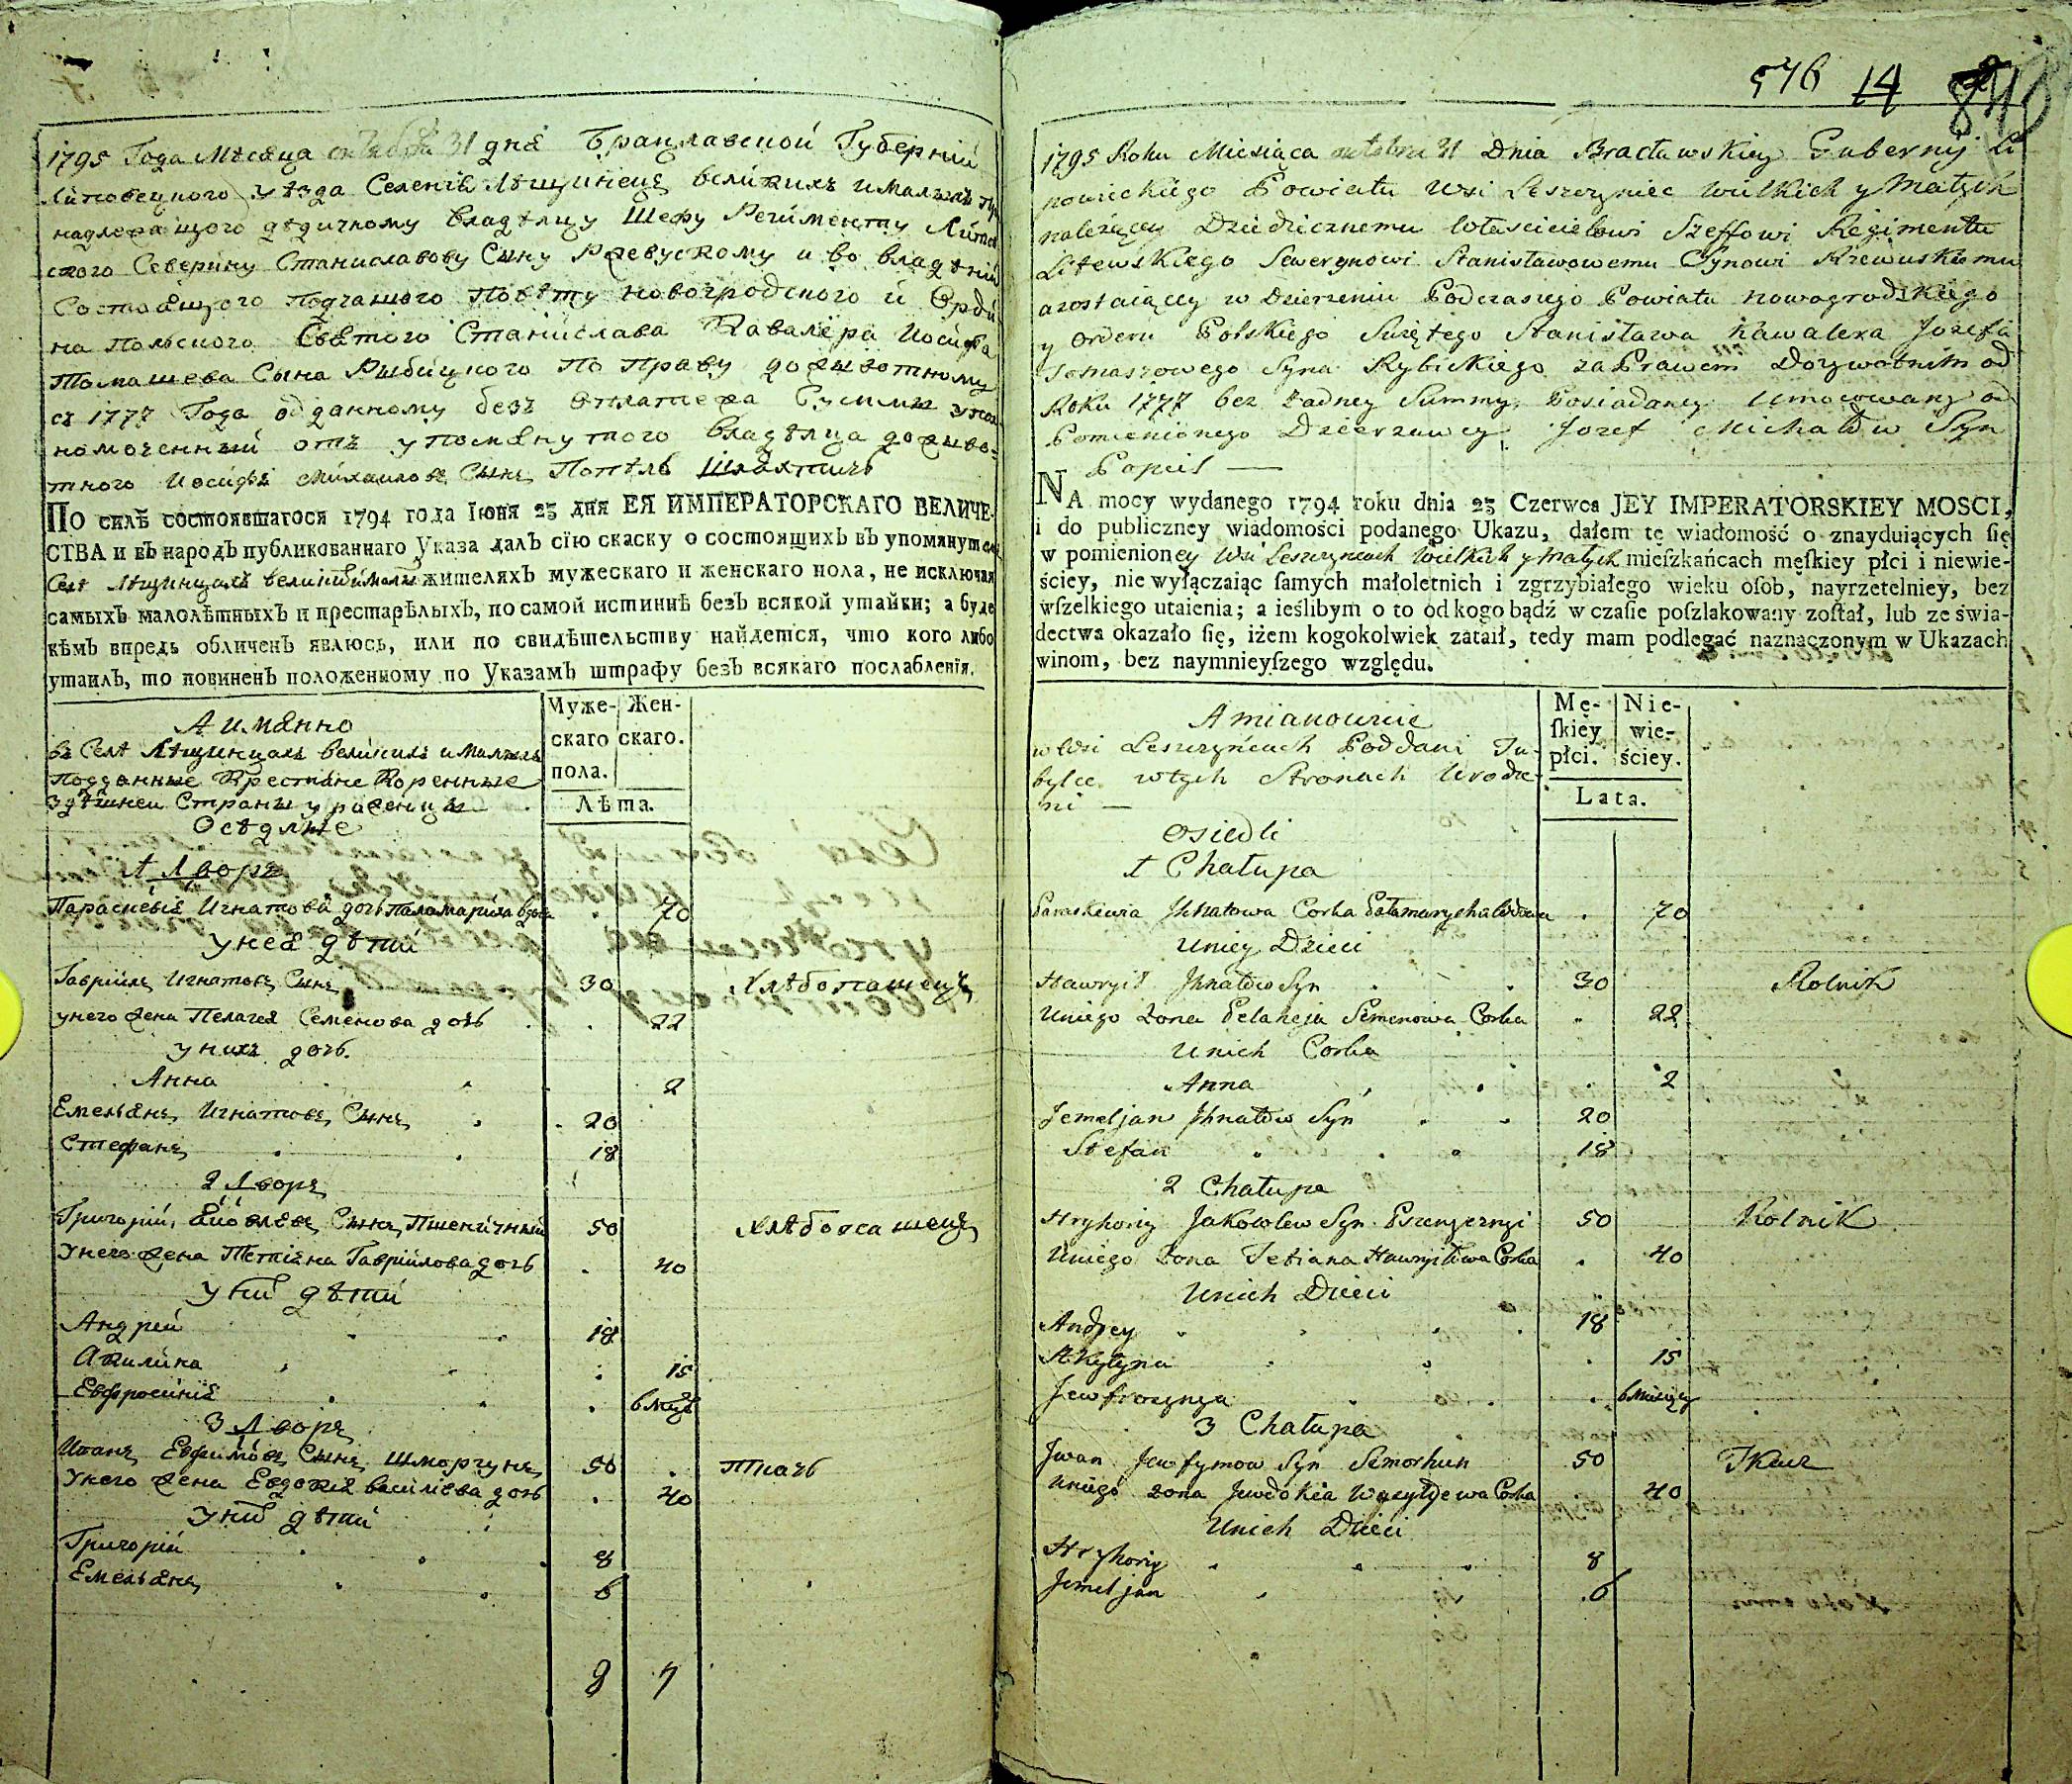 1795 Года Месяца октября 31 дня Брацлавской Губернии
Липовецкого уезда Селений Лещинец великих и малых при
надлежащого дедичному владелцу Шефу Регименту Литов
ского Северину Станиславову Сыну Ржевускому и во владении
Состоящого подчашого повету новогродского и Орди
на польского Святого Станислава Кавалера Иосифа
Томашева Сына Рыбицкого по праву доживотному
съ 1777 Года отданному безъ Суммы упол
номоченный отъ упомянутого владелца доживо-
тного Иосифъ Михаиловъ Сынъ Попель Шляхтичъ
ПО силѣ состоявшагося 1794 года Іюня 23 дня ЕЯ ИМПЕРАТОРСКАГО ВЕЛИЧЕ-
СТВА и въ народъ публикованнаго Указа далъ сїю скаску о состоящихъ въ упомянутомъ
Селе Лещинцахъ великихъ и малыхъ жителяхъ мужескаго и женскаго пола, не исключая
самыхъ малолѣтныхъ и престарѣлыхъ, по самой истиннѣ безъ всякой утайки; а буде
кѣмъ впредь обличенъ явлюсь, или по свидѣтельству найдется, что кого либо
утаилъ, то повиненъ положенному по Указамъ штрафу безъ всякаго послабленїя.
Муже- Жен-
скаго скаго.
пола.
Лѣта.
А имянно
въ Селе Лещинцахъ великихъ и малыхъ
подданные Крестяне Коренные
здѣшней Страны урасенцы
Оседлые
1 Дворъ
Параскевия Игнатова дочь Паламариха вдова 70
у нея дети
Гаврiилъ Игнатовъ Сынъ 30 Хлебопашецъ
у него жена Пелагея Семенова дочь 22
у нихъ дочь
Анна 2
Емельянъ Игнатовъ Сынъ 20
Стефанъ 18
2 Дворъ
Григорий Яковлевъ Сынъ Пшеничный 50 Хлебопашецъ
У него жена Тетияна Гаврийлова дочь 40
У них дети
Андрей 18
Акилина 15
Евфросиния 6 мцъ
3 Дворъ
Иванъ Евфимовъ Сынъ Шморгунъ 50 Ткачъ
У него жена Евдокия василиева дочь 40
У них дети
Григорий 8
Емельянъ 6
8 7
576 14
1795 Roku Miesiąca oktobra 31 Dnia Bracławskiey Guberny Li
powieckiego Powiatu Wsi Leszczyniec Wielkich y Małych
należącey Dziedzicznemu Włascicielowi Szeffowi Regimentu
Litewskiego Sewerynowi Stanisławowemu Synowi Rzewuskiemu
a zostaiącey w Dzierzeniu Podczaszego Powiatu Nowogrodzkiego
y Orderu Polskiego Swiętego Stanisława Kawalera Jozefa
Tomaszowego Syna Rybickiego za Prawem Dozywotnim od
Roku 1777 bez żadney Summy Posiadaney Umocowany od
Pomienionego Dzierzawcy Jozef Michałow Syn
Popiel —
NA mocy wydanego 1794 roku dnia 23 Czerwca JEY IMPERATORSKIEY MOSCI,
i do publiczney wiadomości podanego Ukazu, dałem tę wiadomość o znayduiących się
w pomienioney Wsi Leszczyncach Wielkich y Małych mieſzkańcach męſkiey płci i niewie-
ściey, nie wyłączaiąc ſamych małoletnich i zgrzybiałego wieku oſob, nayrzetelniey, bez
wſzelkiego utaienia; a ieślibym o to od kogo bądź w czaſie poſzlakowany zoſtał, lub ze świa-
dectwa okazało ſię, iżem kogokolwiek zataił, tedy mam podlegać naznaczonym w Ukazach
winom, bez naymnieyſzego względu.
Mę- Nie-
ſkiey wie-
płci. ściey.
Lata.
A mianowicie
w Wsi Leszczyńcach Poddani Tu-
bylce w tych Stronach Urodze-
ni —
osiedli
1 Chałupa
Paraskiewia Jhnatowa Corka Pałamarycha Wdowa 70
Uniey Dzieci
Hawryił Jhnatow Syn 30 Rolnik
Uniego Zona Pelaheja Semenowa Corka 22
Unich Corka
Anna 2
Jemeljan Jhnatow Syn 20
Stefan 18
2 Chałupa
Hryhoriy Jakowlew Syn Pszenycznyi 50 Rolnik
Uniego Zona Tetiana Hawryiłowa Corka 40
Unich Dzieci
Andrey 18
Akylyna 15
Jewfrozynya 6 miesięcy
3 Chałupa
Jwan Jewfymow Syn Szmorhun 50 Tkacz
Uniego zona Jewdokia Wasylijewa Corka 40
Unich Dzieci
Hryhoriy 8
Jemeljan 6